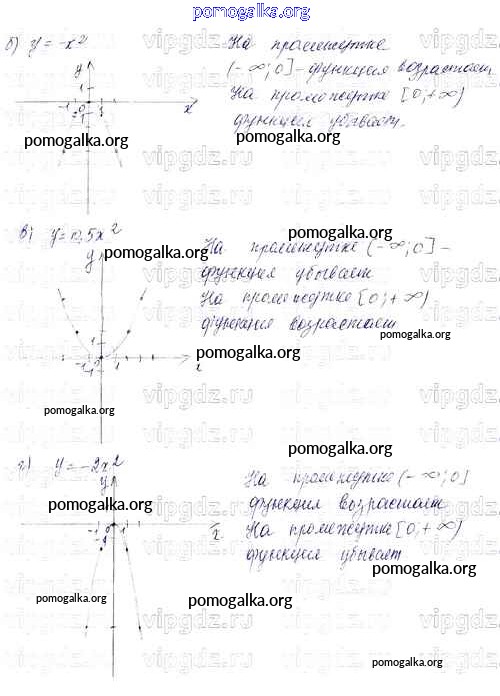 pomogalka.org
б) y = -x²
На промежутке
(-∞; 0] - функция возрастает
На промежутке [0; +∞)
функция убывает.
y
1
-1 0 1
-1
x
pomogalka.org
pomogalka.org
в) y = 0,5x²
pomogalka.org
На промежутке (-∞; 0] -
функция убывает
На промежутке [0; +∞)
функция возрастает
y
1
-1 0 1
-1
x
pomogalka.org
pomogalka.org
pomogalka.org
г) y = -2x²
На промежутке (-∞; 0]
функция возрастает
На промежутке [0; +∞)
функция убывает
y
-1 0 1
x
pomogalka.org
pomogalka.org
pomogalka.org
pomogalka.org
pomogalka.org
vipgdz.ru